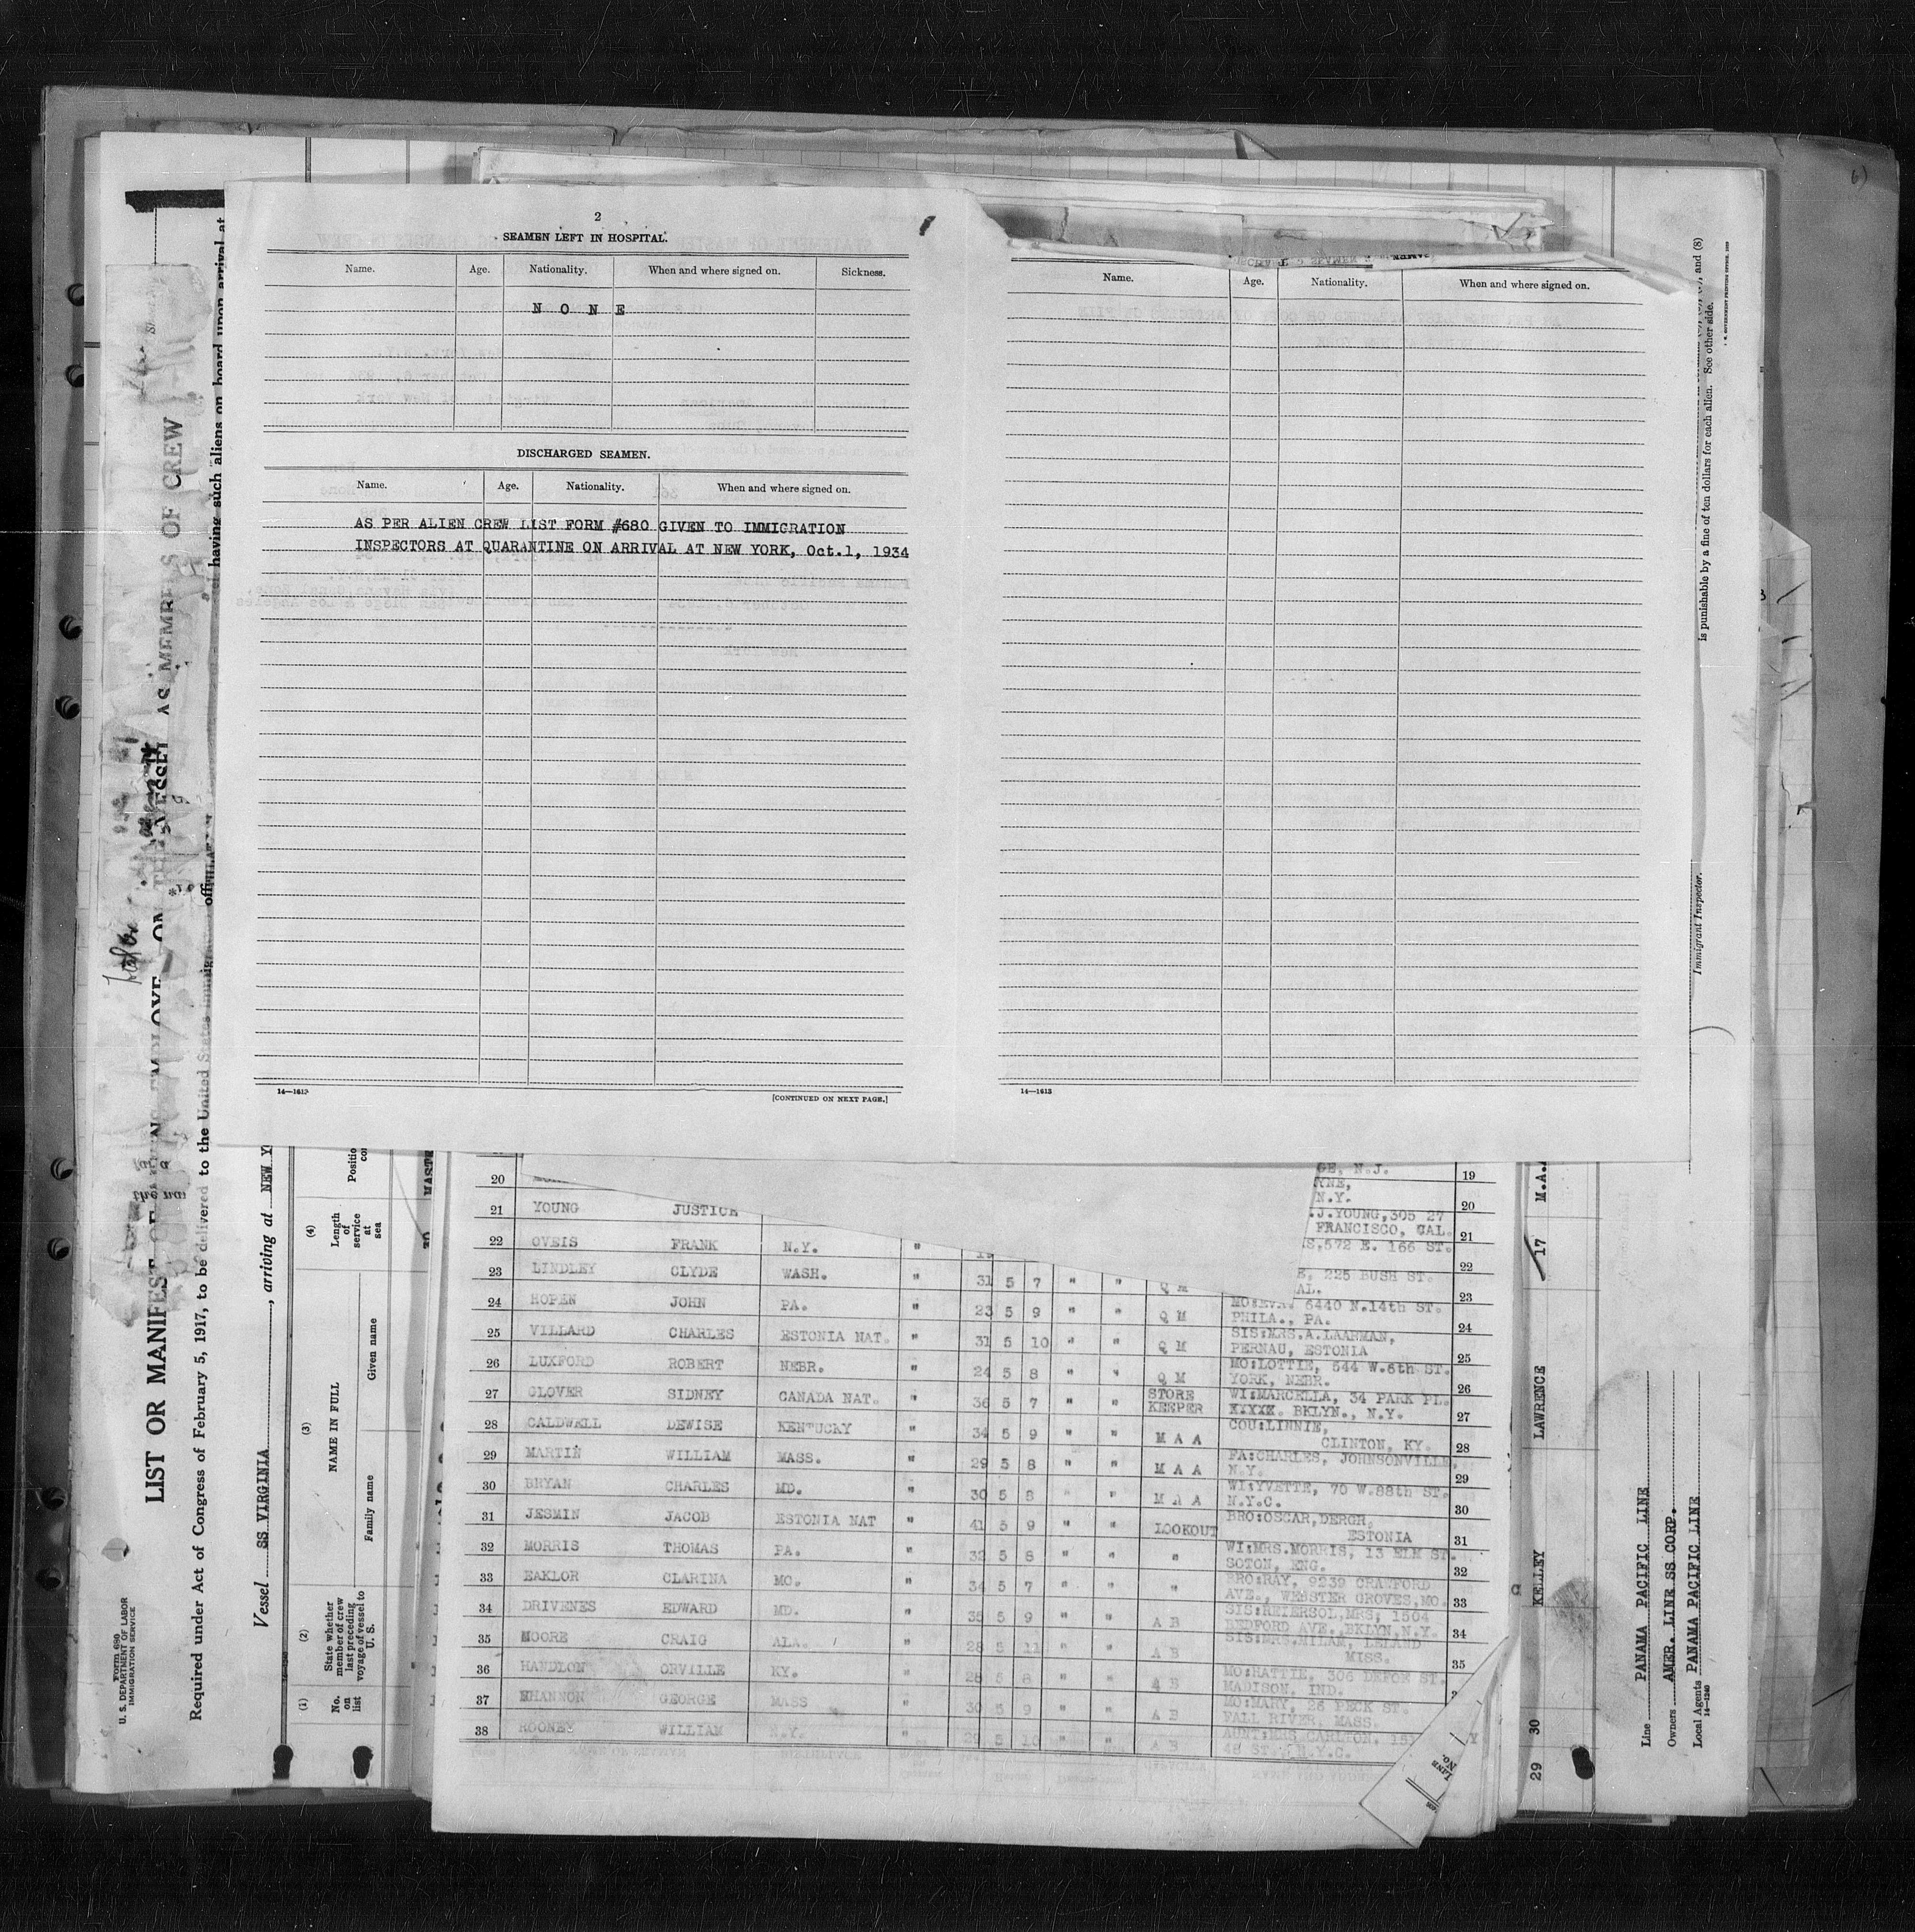 2
SEAMEN LEFT IN HOSPITAL.
Name. Age. Nationality. When and where signed on. Sickness.
N O N E
DISCHARGED SEAMEN.
Name. Age. Nationality. When and where signed on.
AS PER ALIEN CREW LIST FORM #680 GIVEN TO IMMIGRATION
INSPECTORS AT QUARANTINE ON ARRIVAL AT NEW YORK, Oct.1, 1934
14—1613
[CONTINUED ON NEXT PAGE.]
Name. Age. Nationality. When and where signed on.
14—1613
GE, N.J. 19
20 YNE,
N.Y. 20
21 YOUNG JUSTICE .J.YOUNG,305 27
FRANCISCO, CAL. 21
22 OVEIS FRANK N.Y. " S,572 E. 166 ST.
22
23 LINDLEY CLYDE WASH. " 31 5 7 " " Q M E. 225 BUSH ST.
AL. 23
24 ROPEN JOHN PA. " 23 5 9 " " Q M MO:EVA. 6440 N.14th ST.
PHILA., PA. 24
25 VILLARD CHARLES ESTONIA NAT. " 31 5 10 " " Q M SIS:MRS.A.LAARMAN,
PERNAU, ESTONIA 25
26 LUXFORD ROBERT NEBR. " 24 5 8 " " Q M MO:LOTTIE, 544 W.6th ST.
YORK, NEBR. 26
27 GLOVER SIDNEY CANADA NAT. " 36 5 7 " " STORE KEEPER WI:MARCELLA, 34 PARK PL.
XXXXX. BKLYN., N.Y. 27
28 CALDWELL DEWISE KENTUCKY " 34 5 9 " " M A A COU:LINNIE,
CLINTON, KY. 28
29 MARTIN WILLIAM MASS. " 29 5 8 " " M A A FA:CHARLES, JOHNSONVILLE,
N.Y. 29
30 BRYAN CHARLES MD. " 30 5 8 " " M A A WI:YVETTE, 70 W.88th ST.
N.Y.C. 30
31 JESMIN JACOB ESTONIA NAT " 41 5 9 " " LOOKOUT BRO:OSCAR,DERGR,
ESTONIA 31
32 MORRIS THOMAS PA. " 32 5 8 " " " WI:MRS.MORRIS, 13 ELM ST.
SOTON, ENG. 32
33 EAKLOR CLARINA MO. " 34 5 7 " " " BRO:RAY, 9239 CRAWFORD
AVE., WEBSTER GROVES,MO. 33
34 DRIVENES EDWARD MD. " 35 5 9 " " A B SIS:REIERSOL,MRS, 1504
BEDFORD AVE.,BKLYN,N.Y. 34
35 MOORE CRAIG ALA. " 28 5 11 " " A B SIS:MRS.MILAM, LELAND
MISS. 35
36 HANDLON ORVILLE KY. " 28 5 8 " " A B MO:HATTIE, 306 DEPOE ST.
MADISON, IND.
37 SHANNON GEORGE MASS " 30 5 9 " " A B MO:MARY, 26 PECK ST.
FALL RIVER, MASS.
38 ROONEY WILLIAM N.Y. " 29 5 10 " " A B AUNT:MRS CARLTON,
48 ST., N.Y.C.
LINE
NO.
Form 680
U. S. DEPARTMENT OF LABOR
IMMIGRATION SERVICE
LIST OR MANIFEST OF
AS MEMBERS OF CREW
Required under Act of Congress of February 5, 1917, to be delivered to the United States
having such aliens on board upon arrival at
Vessel SS VIRGINIA, arriving at NEW
(1) No. on list
(2) State whether member of crew last preceding voyage of vessel to U. S.
(3) NAME IN FULL
Family name Given name
(4) Length of service at sea
29 30 KELLEY LAWRENCE 17
Line PANAMA PACIFIC LINE
Owners AMER. LINE SS CORP.
Local Agents PANAMA PACIFIC LINE
14—1240
Immigrant Inspector.
is punishable by a fine of ten dollars for each alien. See other side.
and (8)